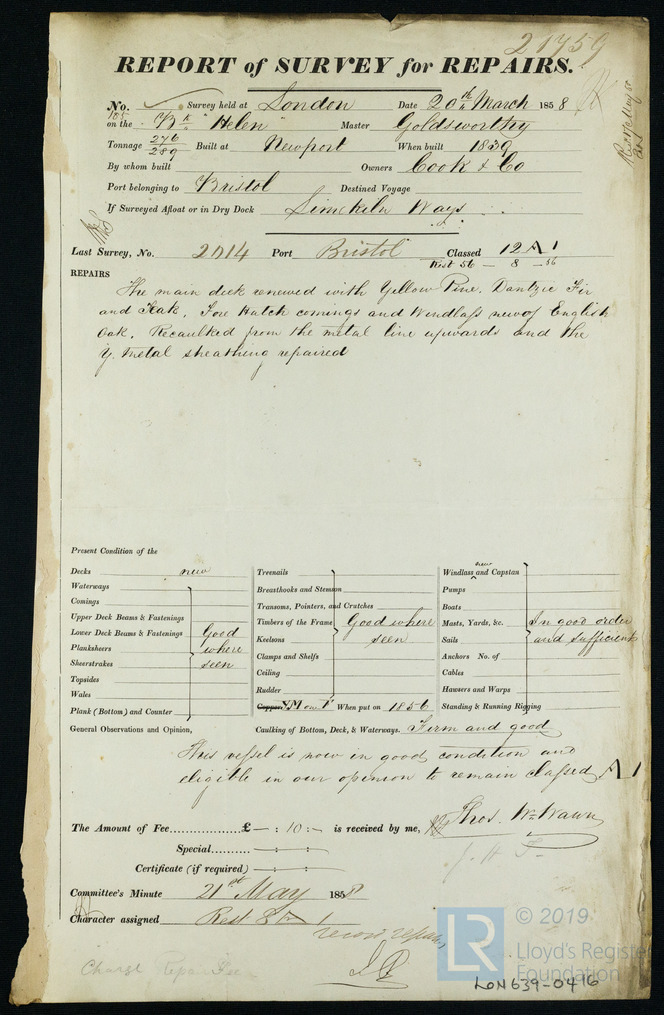 21759
REPORT of SURVEY for REPAIRS.
No. Survey held at London Date 20th March 1858
on the Bk "Helen" Master Goldsworthy
Tonnage 276 289 Built at Newport When built 1839
By whom built Owners Cook & Co
Port belonging to Bristol Destined Voyage
If Surveyed Afloat or in Dry Dock Limekiln Ways
Last Survey, No. 2014 Port Bristol Classed 12 A 1
Rest 56 - 8 - 56
REPAIRS
The main deck renewed with Yellow Pine, Dantzic Fir
and Teak. Fore Hatch comings and Windlass new of English
Oak. Recaulked from the metal line upwards and the
Y. Metal sheathing repaired
Present Condition of the
Decks new
Waterways
Comings
Upper Deck Beams & Fastenings
Lower Deck Beams & Fastenings
Planksheers
Sheerstrakes
Topsides
Wales
Plank (Bottom) and Counter
Good
where
seen
Treenails
Breasthooks and Stemson
Transoms, Pointers, and Crutches
Timbers of the Frame
Keelsons
Clamps and Shelfs
Ceiling
Rudder
Good where
seen
Copper YM on F When put on 1856
new
Windlass and Capstan
Pumps
Boats
Masts, Yards, &c.
Sails
Anchors No. of
Cables
Hawsers and Warps
Standing & Running Rigging
In good order
and sufficient
General Observations and Opinion, Caulking of Bottom, Deck, & Waterways. Firm and good
This vessel is now in good condition and
eligible in our opinion to remain classed A 1
The Amount of Fee £ - : 10 : - is received by me, Thos. Wm Wawn
Special - : - : -
Certificate (if required) - : - : -
Committee's Minute 21st May 1858
Character assigned Rest 8 A 1
record repairs
Charge Repair Fee
LR
© 2019
Lloyd's Register
Foundation
LON639-0416